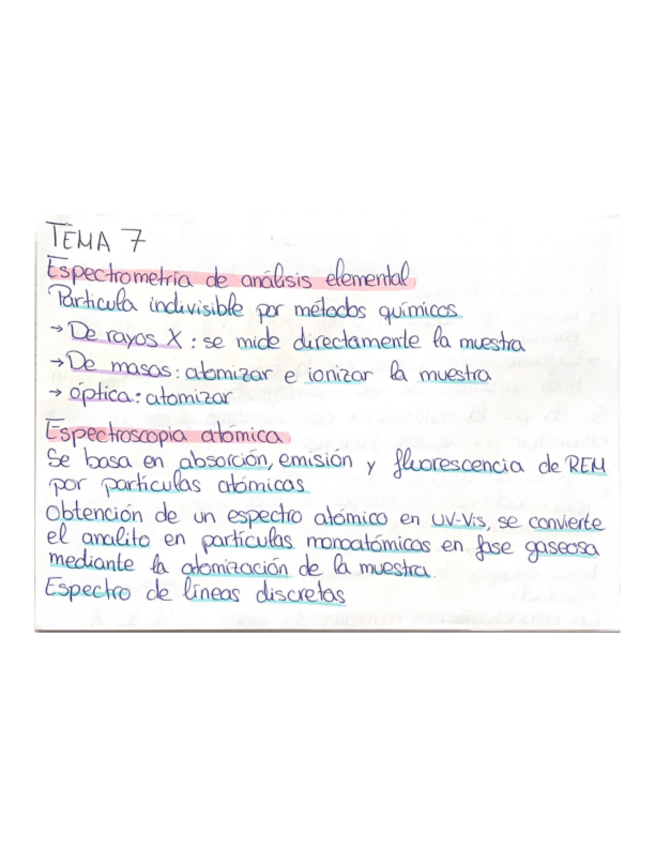 TEMA 7
Espectrometría de análisis elemental
Partícula indivisible por métodos químicos.
→ De rayos X: se mide directamente la muestra
→ De masas: atomizar e ionizar la muestra
→ óptica: atomizar
Espectroscopia atómica
Se basa en absorción, emisión y fluorescencia de REM
por partículas atómicas.
Obtención de un espectro atómico en UV-Vis, se convierte
el analito en partículas monoatómicas en fase gaseosa
mediante la atomización de la muestra.
Espectro de líneas discretas